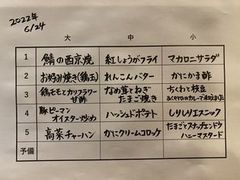 2022年
6/24
大 中 小
1 鯖の西京焼 紅しょうがフライ マカロニサラダ
2 お好み焼き(鶏玉) れんこんバター かにかま酢
3 鶏モモとカリフラワー なめ茸とねぎ ちくわと枝豆
甘酢 たまご焼き
4 豚ピーマン ハッシュドポテト しりしりエスニック
オイスター炒め
5 高菜チャーハン かにクリームコロッケ たまごとスナップエンドウ
ハニーマスタード
予備